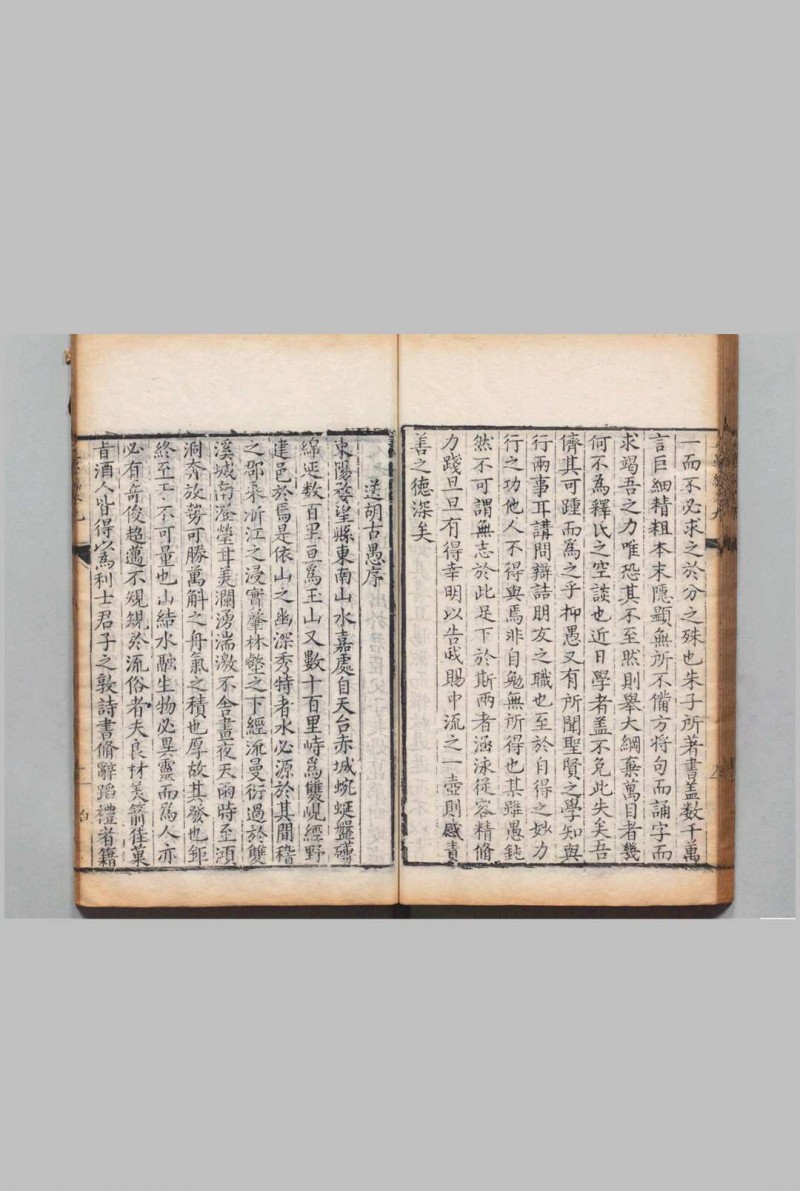 一而不必求之於分之殊也朱子所著書盖数千萬
言巨細精粗本末隱顯無所不備方將句而誦字而
求竭吾之力唯恐其不至然則舉大綱棄萬目者幾
何不為釋氏之空談也近日學者盖不免此失矣吾
儕其可踵而為之乎抑愚又有所聞聖賢之學知與
行兩事耳講問辯詰朋友之職也至於自得之妙力
行之功他人不得與焉非自勉無所得也某雖愚鈍
然不可謂無志於此足下於斯兩者涵泳從容精脩
力踐旦旦有得幸明以告我賜中流之一壺則感責
善之德深矣
送胡古愚序
東陽婺望縣東南山水嘉處自天台赤城蜿蜒盤礴
綿延数百里亘為玉山又數十百里峙爲雙峴經野
建邑於焉是依山之幽深秀特者水必源於其間稽
之郡乘浙江之浸實肇林壑之下經流曼衍過於雙
溪城南澄瑩甘美瀾湧湍激不舍晝夜天雨時至澒
洞奔放勢可勝萬斛之舟氣之積也厚故其發也鉅
終至于不可量也山結水融生物必異靈而為人亦
必有奇俊超邁不規規於流俗者夫良材美箭佳菓
旨酒人皆得以為利士君子之敦詩書脩辭蹈禮者籍